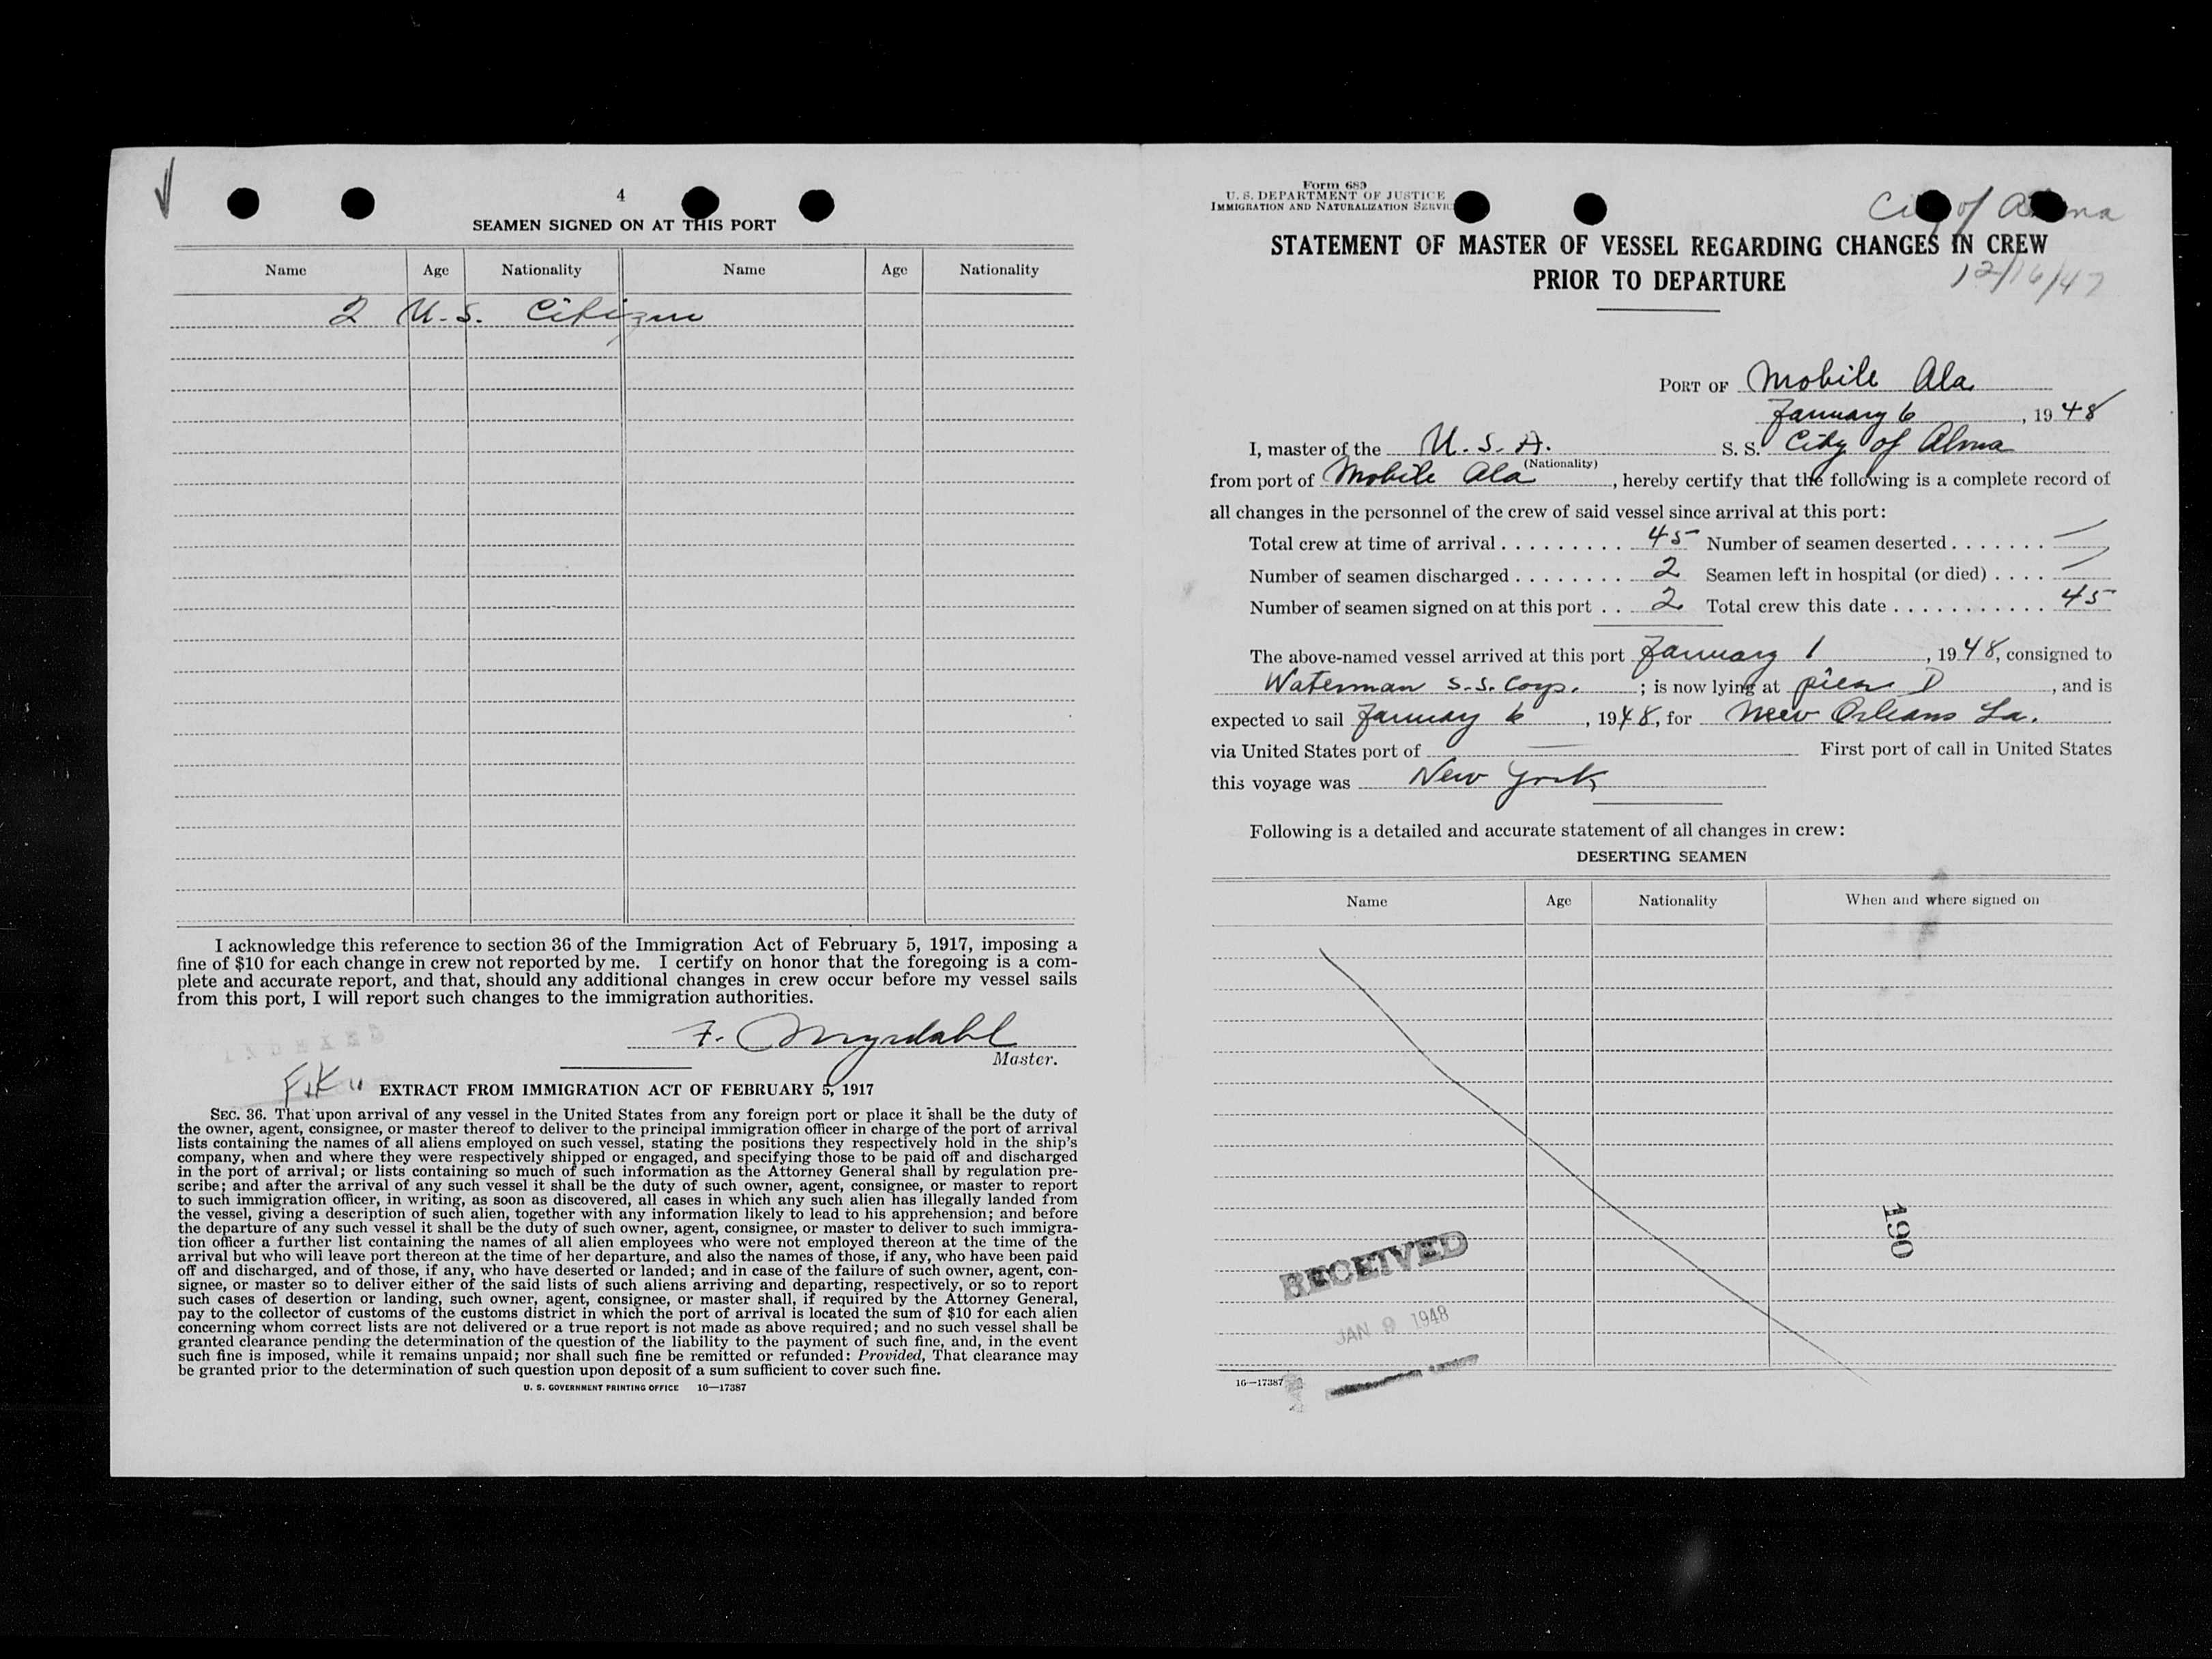 4
SEAMEN SIGNED ON AT THIS PORT
Name Age Nationality Name Age Nationality
2 U.S. Citizen
I acknowledge this reference to section 36 of the Immigration Act of February 5, 1917, imposing a
fine of $10 for each change in crew not reported by me. I certify on honor that the foregoing is a com-
plete and accurate report, and that, should any additional changes in crew occur before my vessel sails
from this port, I will report such changes to the immigration authorities.
F. Myrdahl
Master.
EXTRACT FROM IMMIGRATION ACT OF FEBRUARY 5, 1917
SEC. 36. That upon arrival of any vessel in the United States from any foreign port or place it shall be the duty of
the owner, agent, consignee, or master thereof to deliver to the principal immigration officer in charge of the port of arrival
lists containing the names of all aliens employed on such vessel, stating the positions they respectively hold in the ship's
company, when and where they were respectively shipped or engaged, and specifying those to be paid off and discharged
in the port of arrival; or lists containing so much of such information as the Attorney General shall by regulation pre-
scribe; and after the arrival of any such vessel it shall be the duty of such owner, agent, consignee, or master to report
to such immigration officer, in writing, as soon as discovered, all cases in which any such alien has illegally landed from
the vessel, giving a description of such alien, together with any information likely to lead to his apprehension; and before
the departure of any such vessel it shall be the duty of such owner, agent, consignee, or master to deliver to such immigra-
tion officer a further list containing the names of all alien employees who were not employed thereon at the time of the
arrival but who will leave port thereon at the time of her departure, and also the names of those, if any, who have been paid
off and discharged, and of those, if any, who have deserted or landed; and in case of the failure of such owner, agent, con-
signee, or master so to deliver either of the said lists of such aliens arriving and departing, respectively, or so to report
such cases of desertion or landing, such owner, agent, consignee, or master shall, if required by the Attorney General,
pay to the collector of customs of the customs district in which the port of arrival is located the sum of $10 for each alien
concerning whom correct lists are not delivered or a true report is not made as above required; and no such vessel shall be
granted clearance pending the determination of the question of the liability to the payment of such fine, and, in the event
such fine is imposed, while it remains unpaid; nor shall such fine be remitted or refunded: Provided, That clearance may
be granted prior to the determination of such question upon deposit of a sum sufficient to cover such fine.
U. S. GOVERNMENT PRINTING OFFICE 16—17387
Form 689
U. S. DEPARTMENT OF JUSTICE
IMMIGRATION AND NATURALIZATION SERVICE
City of Alma
STATEMENT OF MASTER OF VESSEL REGARDING CHANGES IN CREW
PRIOR TO DEPARTURE
12/16/47
PORT OF Mobile Ala
January 6, 1948
I, master of the U.S.A. S. S. City of Alma
(Nationality)
from port of Mobile Ala, hereby certify that the following is a complete record of
all changes in the personnel of the crew of said vessel since arrival at this port:
Total crew at time of arrival . . . . . . . . . 45 Number of seamen deserted . . . . . . . —
Number of seamen discharged . . . . . . . . 2 Seamen left in hospital (or died) . . . . —
Number of seamen signed on at this port . . 2 Total crew this date . . . . . . . . . . . 45
The above-named vessel arrived at this port January 1, 1948, consigned to
Waterman S.S. Corp. ; is now lying at pier D, and is
expected to sail January 6, 1948, for New Orleans La.
via United States port of — First port of call in United States
this voyage was New York
Following is a detailed and accurate statement of all changes in crew:
DESERTING SEAMEN
Name Age Nationality When and where signed on
190
RECEIVED
JAN 9 1948
16—17387